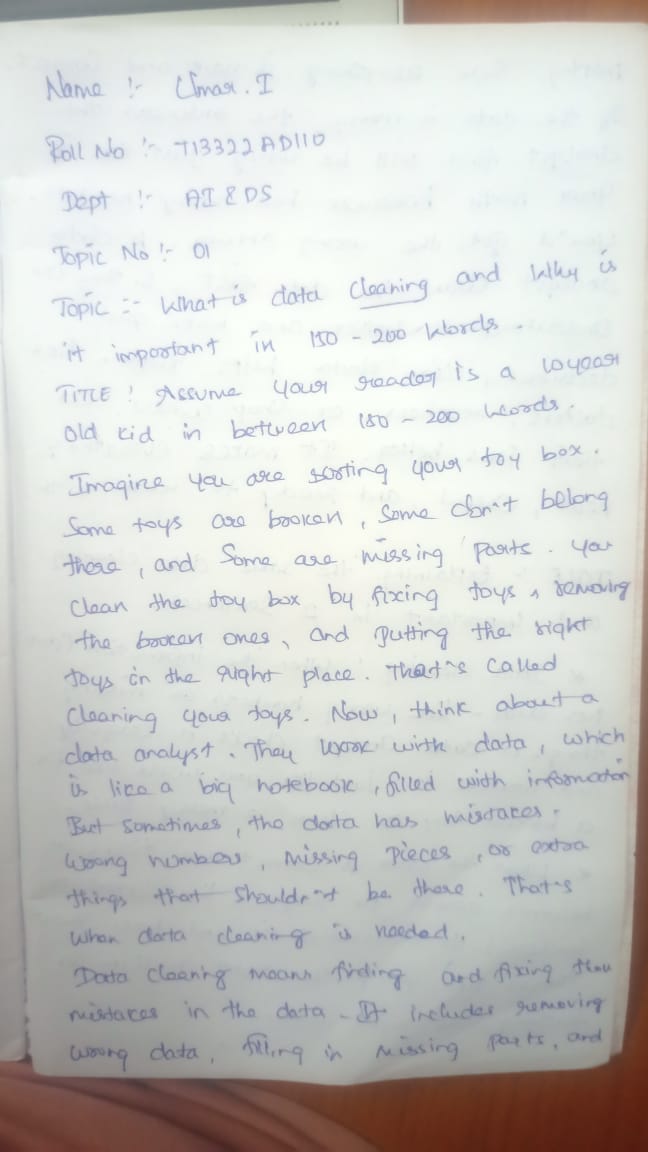 Name :- Umar. I
Roll No :- 713322AD110
Dept :- AI & DS
Topic No :- 01
Topic :- What is data cleaning and Why is
it important in 150 - 200 Words.
TITLE : Assume your reader is a 10 year
old kid in between 150 - 200 Words.
Imagine you are sorting your toy box.
Some toys are broken, Some don't belong
there, and Some are missing parts. You
clean the toy box by fixing toys, removing
the broken ones, and putting the right
toys in the right place. That's called
Cleaning your toys. Now, think about a
data analyst. They work with data, which
is like a big notebook, filled with information
But sometimes, the data has mistakes.
Wrong numbers, missing pieces, or extra
things that shouldn't be there. That's
when data cleaning is needed.
Data Cleaning means finding and fixing
mistakes in the data. It includes removing
wrong data, filling in missing parts, and